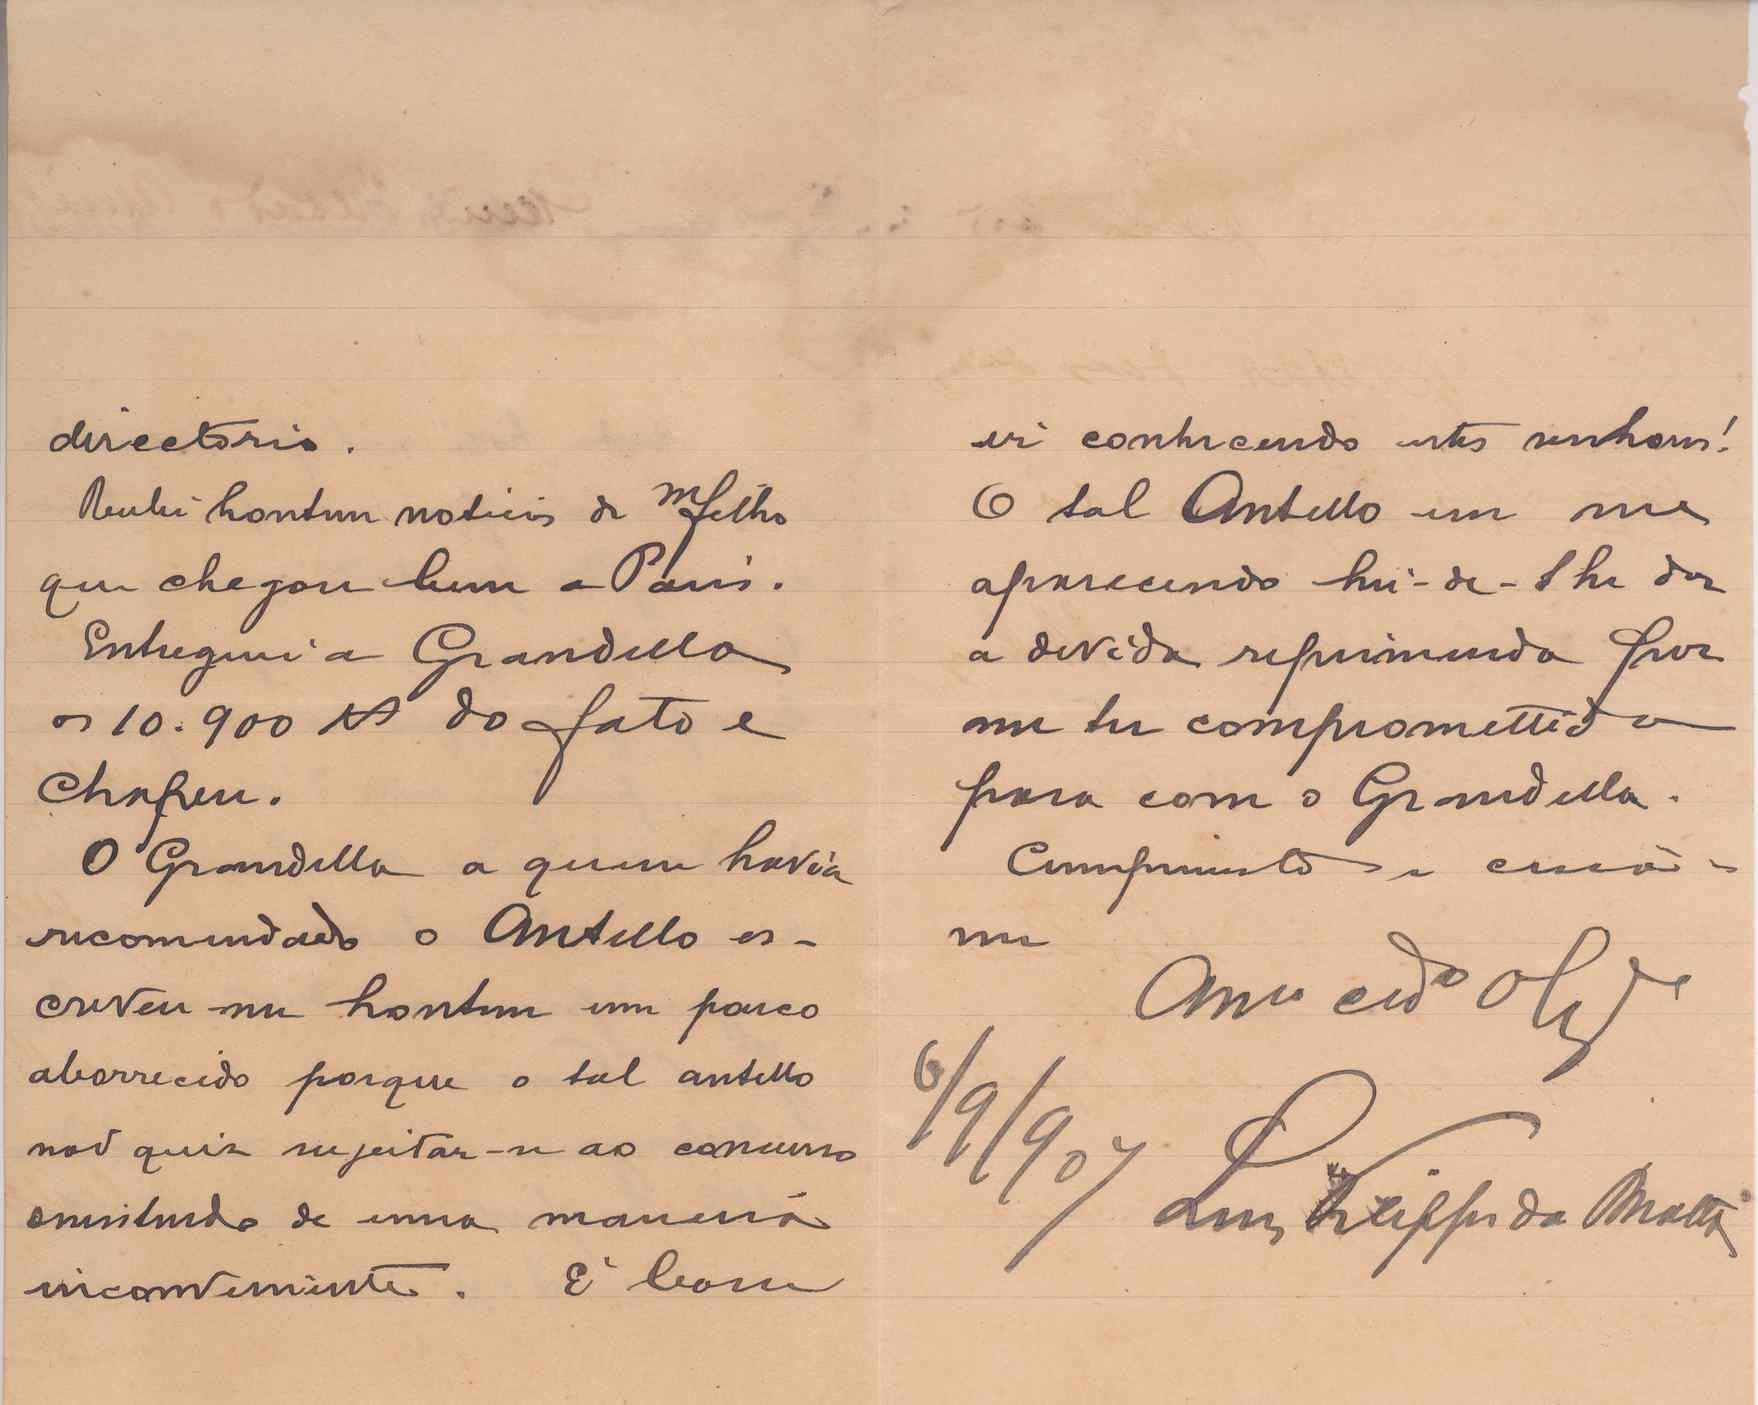 directorio.
Recebi hontem noticias de m filho
que chegou bem a Paris.
Entreguei a Grandella
os 10.900 rs do fato e
chapeu.
O Grandella a quem havia
recomendado o Antello es-
creveu-me hontem um pouco
aborrecido porque o tal antello
não quiz sujeitar-se ao concurso
de uma maneira
inconveniente. É bom
ir conhecendo estes senhores!
O tal Antello em me
aparecendo hei-de-lhe dar
a devida reprimenda por
me ter compromettido
para com o Grandella.
Cumprimentos e creia-
me
Amo cedo obgdo
6/9/907
Luis Filippe da Matta